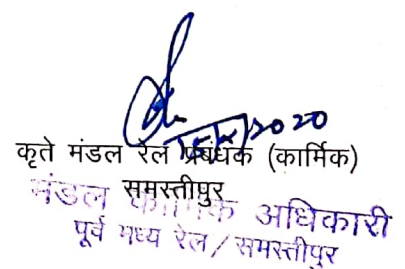 2020
कृते मंडल रेल प्रबंधक (कार्मिक)
समस्तीपुर
मंडल कार्मिक अधिकारी
पूर्व मध्य रेल/समस्तीपुर